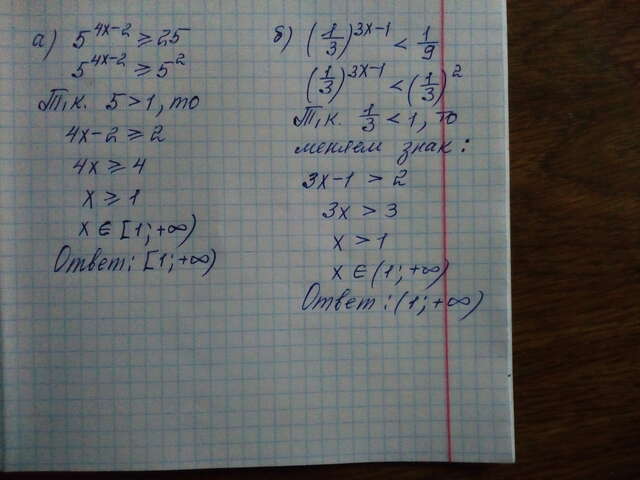 а) 5^{4x-2} ≥ 25
5^{4x-2} ≥ 5^2
Т.к. 5 > 1, то
4x-2 ≥ 2
4x ≥ 4
x ≥ 1
x ∈ [1; +∞)
Ответ: [1; +∞)
б) (1/3)^{3x-1} < 1/9
(1/3)^{3x-1} < (1/3)^2
Т.к. 1/3 < 1, то
меняем знак:
3x-1 > 2
3x > 3
x > 1
x ∈ (1; +∞)
Ответ: (1; +∞)